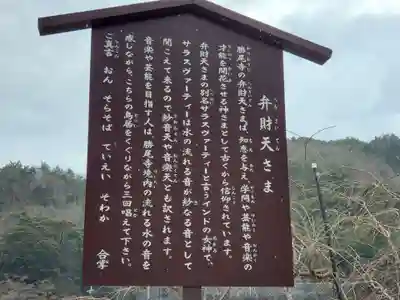 弁財天さま
勝尾寺の弁財天さまは、知恵を与え、学問や芸能や音楽の
才能を開花させる神さまとして古くから信仰されています。
弁財天さまの別名サラスヴァーティーと言うインドの女神で、
サラスヴァーティーは水の流れる音が妙なる音として
聞こえて来るので妙音天や音楽天とも訳されます。
音楽や芸能を目指す人は、勝尾寺境内の流れる水の音を
感じながら、こちらの鳥居をくぐりながら三回唱えて下さい。
ご真言 おん そらそば ていえい そわか 合掌